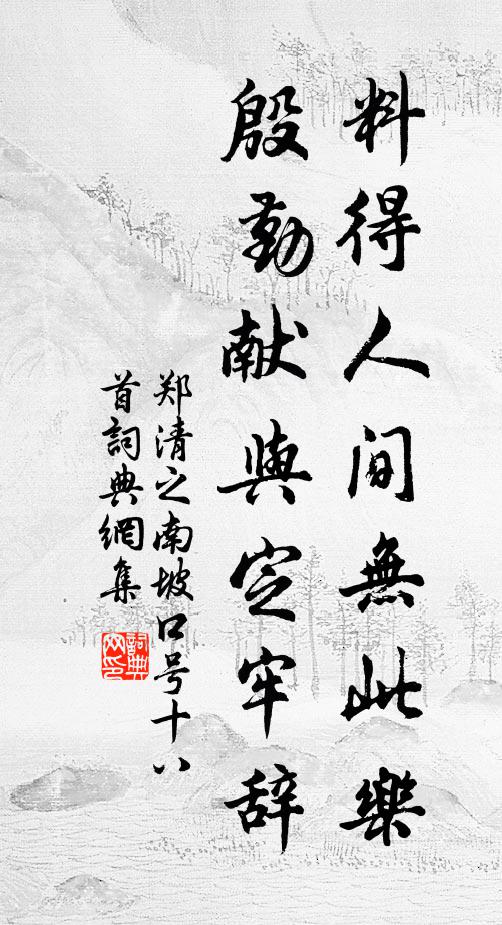 料得人间無此樂
殷勤献與定牢辞
郑清之南坡口号十八
首詞典網集
詞典
网印